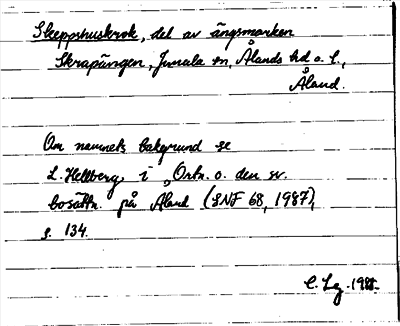 Skeppshuskrok, del av ängsmarken
Skrapängen, Jomala sn, Ålands hd o. l.,
Åland.
Om namnets bakgrund se
L. Hellberg i "Ortn. o. den sv.
bosättn. på Åland (SNF 68, 1987),
s. 134.
1988.